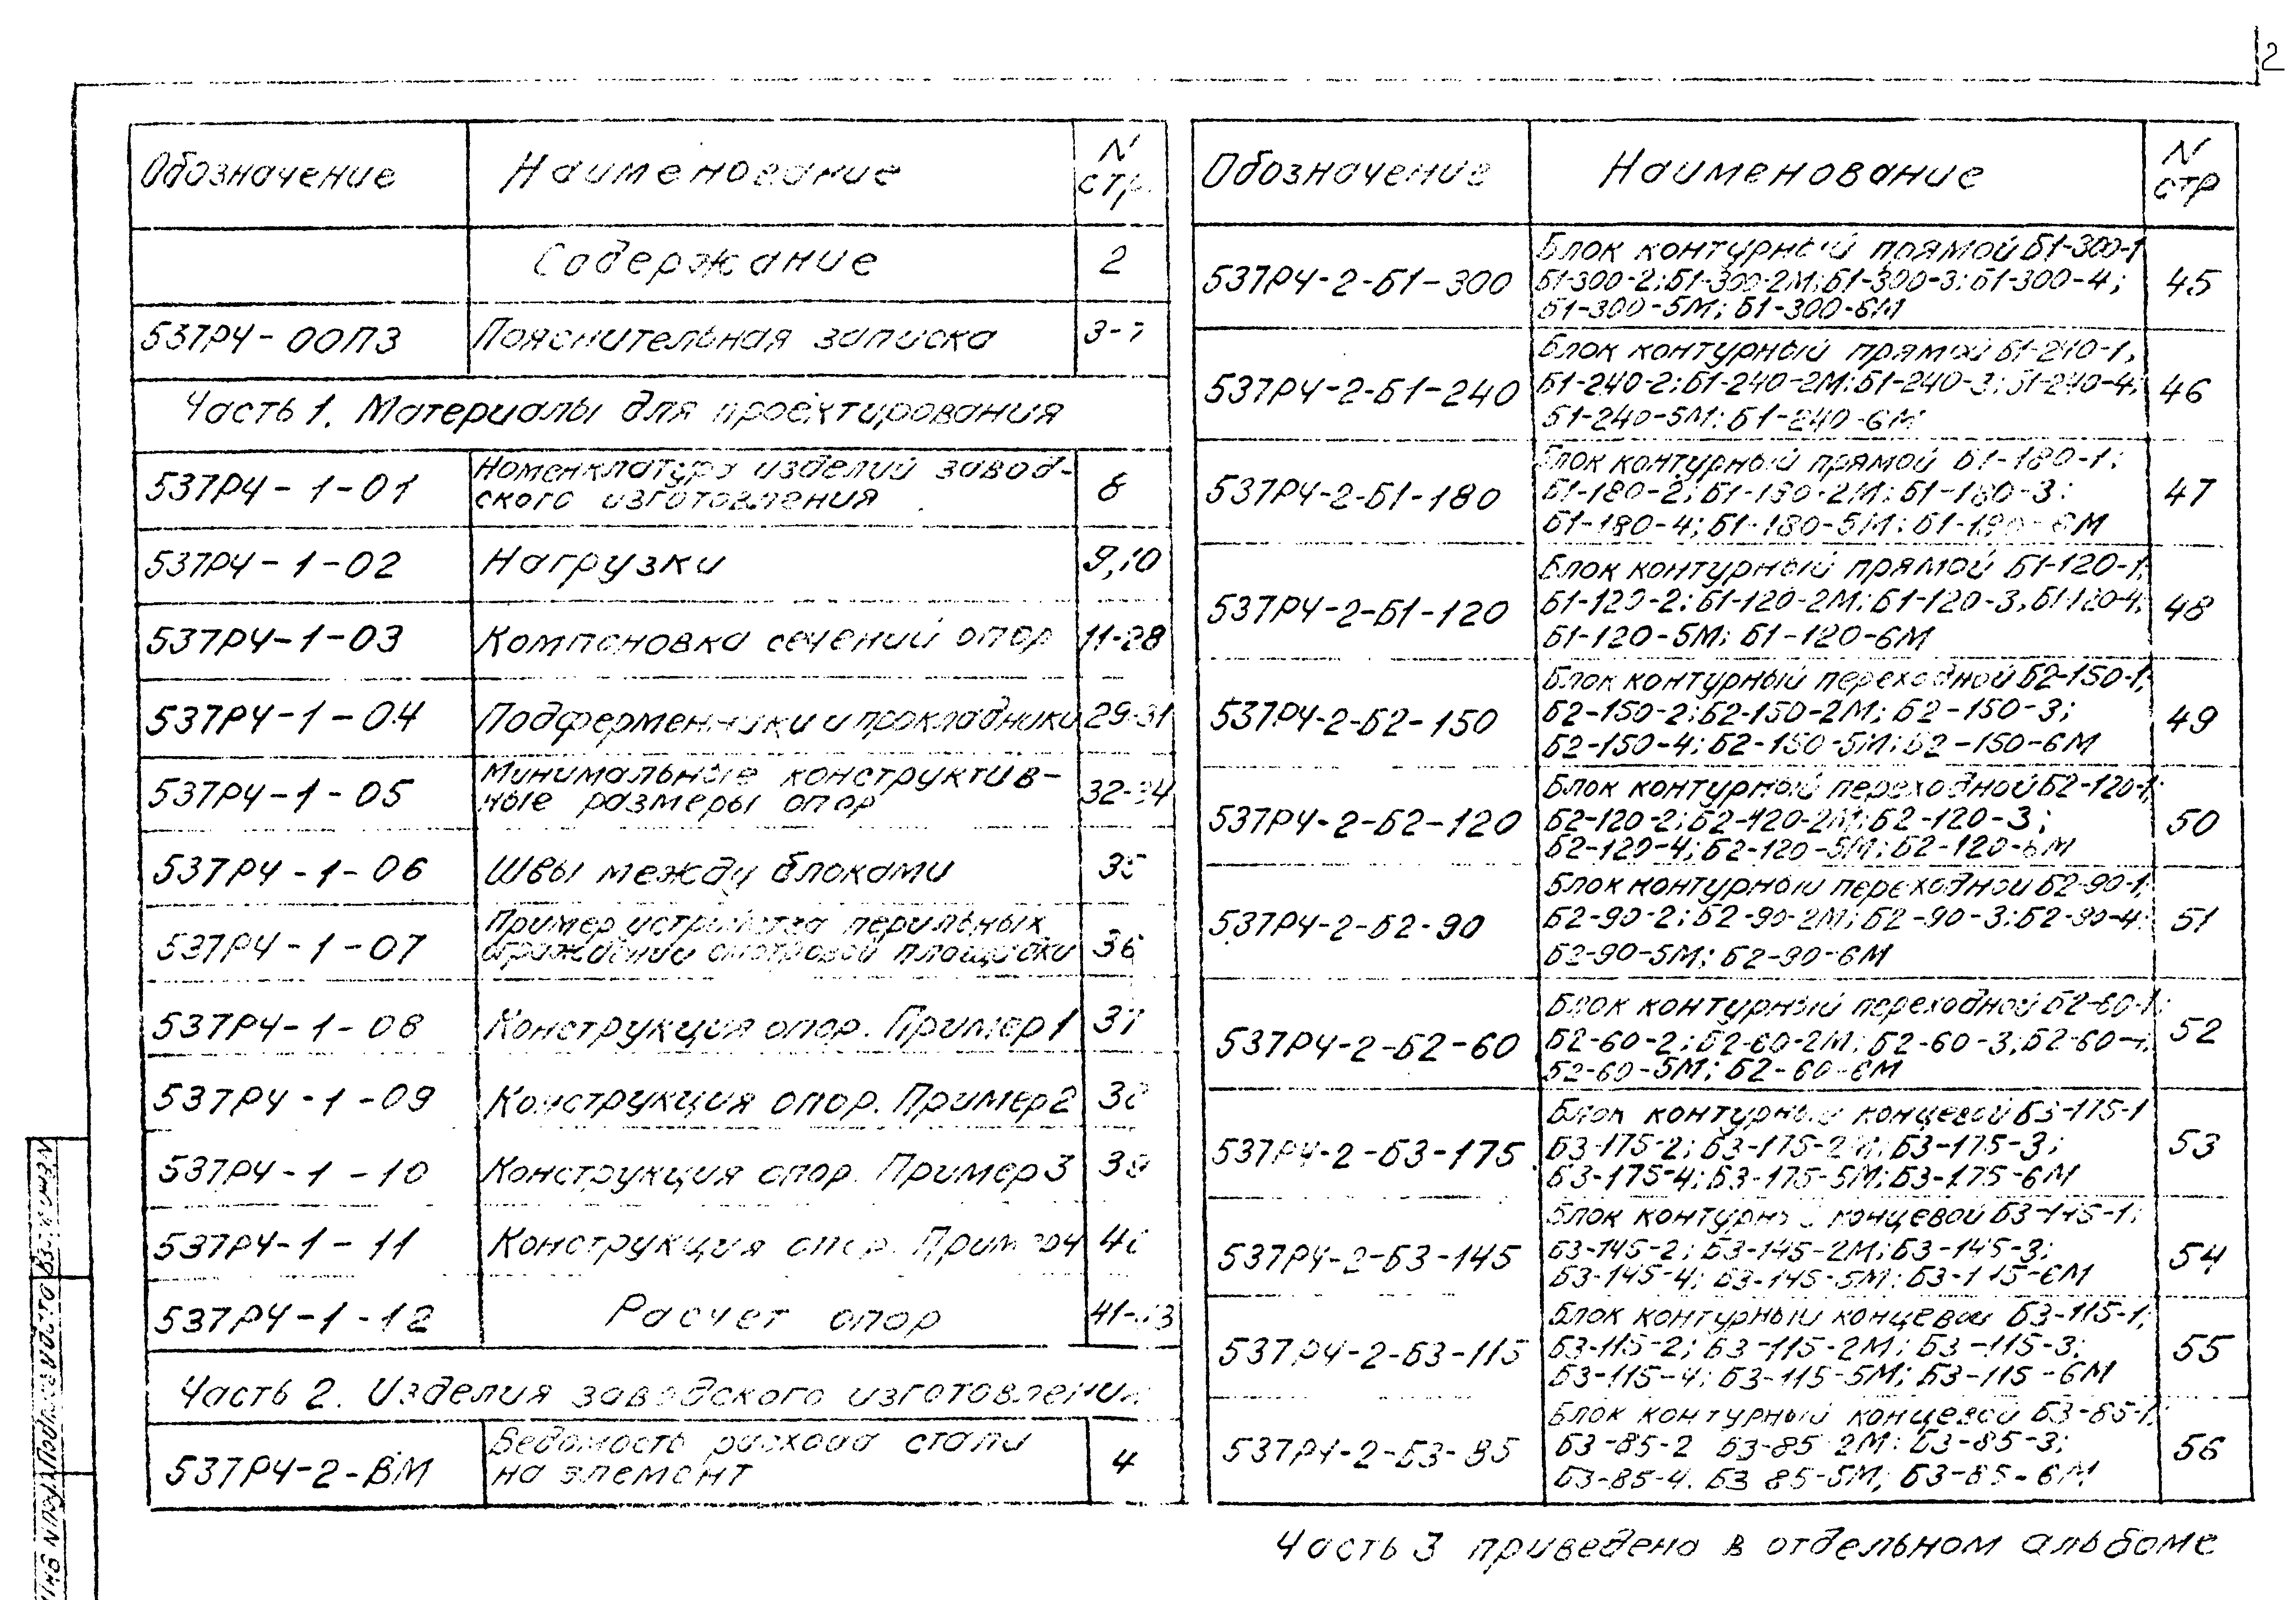 2
Обозначение Наименование N стр.
Содержание 2
537РЧ-00ПЗ Пояснительная записка 3-7
Часть 1. Материалы для проектирования
537РЧ-1-01 Номенклатура изделий завод-
ского изготовления 8
537РЧ-1-02 Нагрузки 9,10
537РЧ-1-03 Компоновка сечений опор 11-28
537РЧ-1-04 Подферменники и прокладники 29-31
537РЧ-1-05 Минимальные конструктив-
ные размеры опор 32-34
537РЧ-1-06 Швы между блоками 35
537РЧ-1-07 Пример устройства перильных
ограждений смотровой площадки 36
537РЧ-1-08 Конструкция опор. Пример 1 37
537РЧ-1-09 Конструкция опор. Пример 2 38
537РЧ-1-10 Конструкция опор. Пример 3 39
537РЧ-1-11 Конструкция опор. Пример 4 40
537РЧ-1-12 Расчет опор 41-43
Часть 2. Изделия заводского изготовления
537РЧ-2-ВМ Ведомость расхода стали
на элемент 4
Обозначение Наименование N стр
537РЧ-2-Б1-300 Блок контурный прямой Б1-300-1
Б1-300-2; Б1-300-2М; Б1-300-3; Б1-300-4;
Б1-300-5М; Б1-300-6М 45
537РЧ-2-Б1-240 Блок контурный прямой Б1-240-1,
Б1-240-2; Б1-240-2М; Б1-240-3; Б1-240-4;
Б1-240-5М; Б1-240-6М 46
537РЧ-2-Б1-180 Блок контурный прямой Б1-180-1;
Б1-180-2; Б1-180-2М; Б1-180-3;
Б1-180-4; Б1-180-5М; Б1-180-6М 47
537РЧ-2-Б1-120 Блок контурный прямой Б1-120-1;
Б1-120-2; Б1-120-2М; Б1-120-3, Б1-120-4;
Б1-120-5М; Б1-120-6М 48
537РЧ-2-Б2-150 Блок контурный переходной Б2-150-1;
Б2-150-2; Б2-150-2М; Б2-150-3;
Б2-150-4; Б2-150-5М; Б2-150-6М 49
537РЧ-2-Б2-120 Блок контурный переходной Б2-120-1;
Б2-120-2; Б2-120-2М; Б2-120-3;
Б2-120-4; Б2-120-5М; Б2-120-6М 50
537РЧ-2-Б2-90 Блок контурный переходной Б2-90-1;
Б2-90-2; Б2-90-2М; Б2-90-3; Б2-90-4;
Б2-90-5М; Б2-90-6М 51
537РЧ-2-Б2-60 Блок контурный переходной Б2-60-1;
Б2-60-2; Б2-60-2М; Б2-60-3; Б2-60-4;
Б2-60-5М; Б2-60-6М 52
537РЧ-2-Б3-175 Блок контурный концевой Б3-175-1
Б3-175-2; Б3-175-2М; Б3-175-3;
Б3-175-4; Б3-175-5М; Б3-175-6М 53
537РЧ-2-Б3-145 Блок контурный концевой Б3-145-1;
Б3-145-2; Б3-145-2М; Б3-145-3;
Б3-145-4; Б3-145-5М; Б3-145-6М 54
537РЧ-2-Б3-115 Блок контурный концевой Б3-115-1;
Б3-115-2; Б3-115-2М; Б3-115-3;
Б3-115-4; Б3-115-5М; Б3-115-6М 55
537РЧ-2-Б3-85 Блок контурный концевой Б3-85-1;
Б3-85-2 Б3-85-2М; Б3-85-3;
Б3-85-4. Б3-85-5М; Б3-85-6М 56
Часть 3 приведена в отдельном альбоме